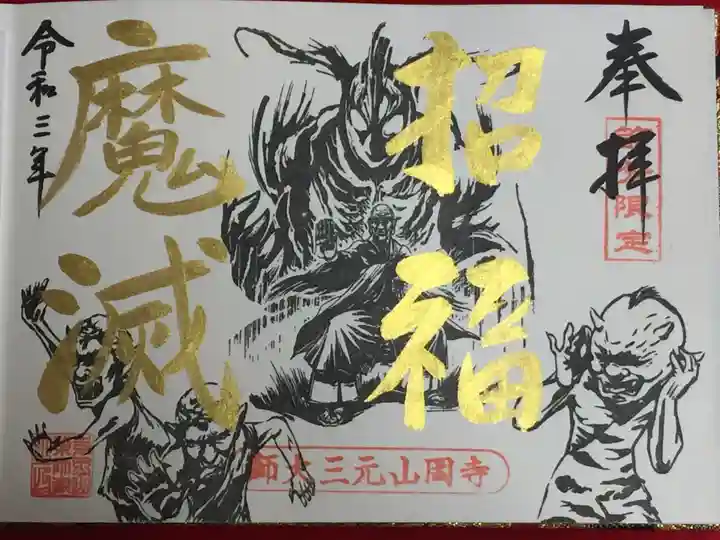 奉拝
限定
招福
魔滅
令和三年
師大三元山岡寺